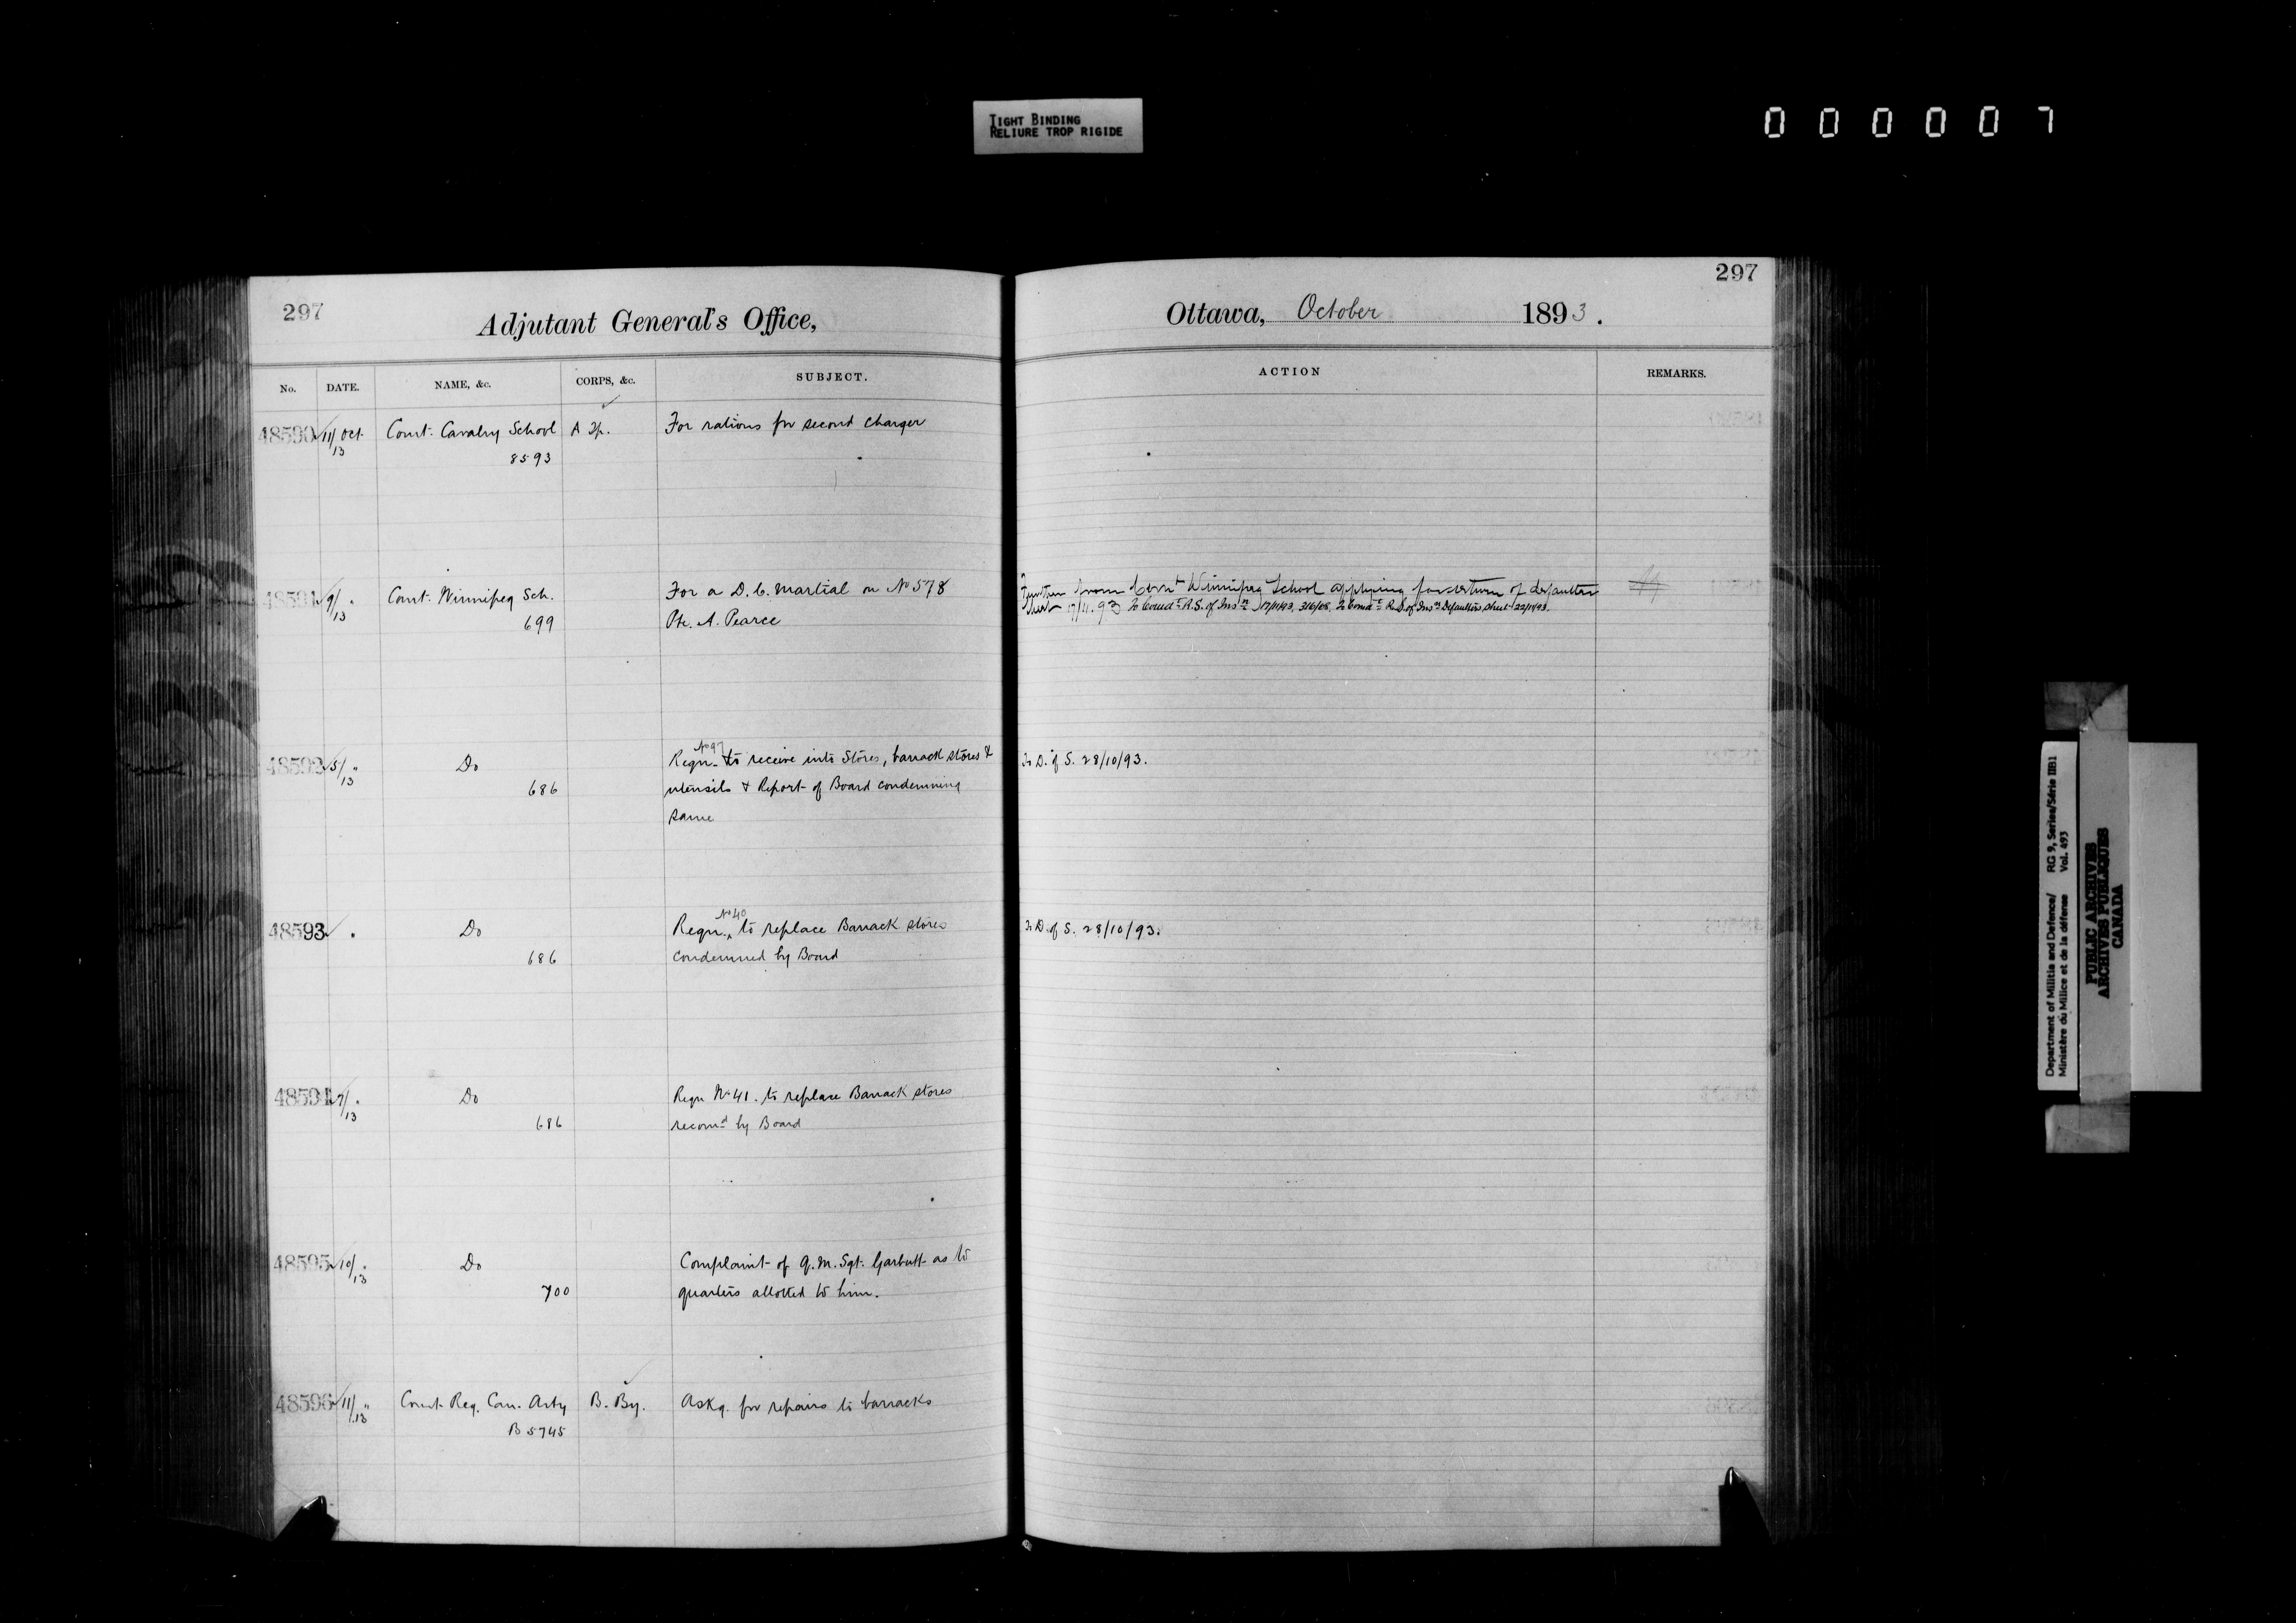 TIGHT BINDING
RELIURE TROP RIGIDE
000007
297
Adjutant General's Office,
No. DATE. NAME, &c. CORPS, &c. SUBJECT.
48590 11/13 Oct. Comt. Cavalry School A Tp. For rations for second charger
8593
48591 9/13 " Comt. Winnipeg Sch. For a D. C. Martial on No 578
699 Pte. A. Pearce
48592 5/13 " Do Requn No 97 to receive into Stores, barrack stores &
686 utensils & Report of Board condemning
same
48593 " Do Requn. No 40 to replace Barrack stores
686 condemned by Board
48594 7/13 " Do Requn No 41. to replace Barrack stores
686 recomd by Board
48595 10/13 " Do Complaint of Q.M. Sgt. Garbutt as to
700 quarters allotted to him.
48596 11/13 " Comt. Reg. Can. Arty B. By. Askg. for repairs to barracks
B 5745
297
Ottawa, October 1893.
ACTION REMARKS.
from Comt Winnipeg School applying for return of defaulter
sheet 17/11.93 To Comdt R.S. of Insn 17/11/93. To Comdt R.S. of Insn Defaulters sheet 22/11/93.
To D. of S. 28/10/93.
To D. of S. 28/10/93.
Department of Militia and Defence/ RG 9, Series/Série IIB1
Ministère du Milice et de la défense Vol. 493
PUBLIC ARCHIVES
ARCHIVES PUBLIQUES
CANADA